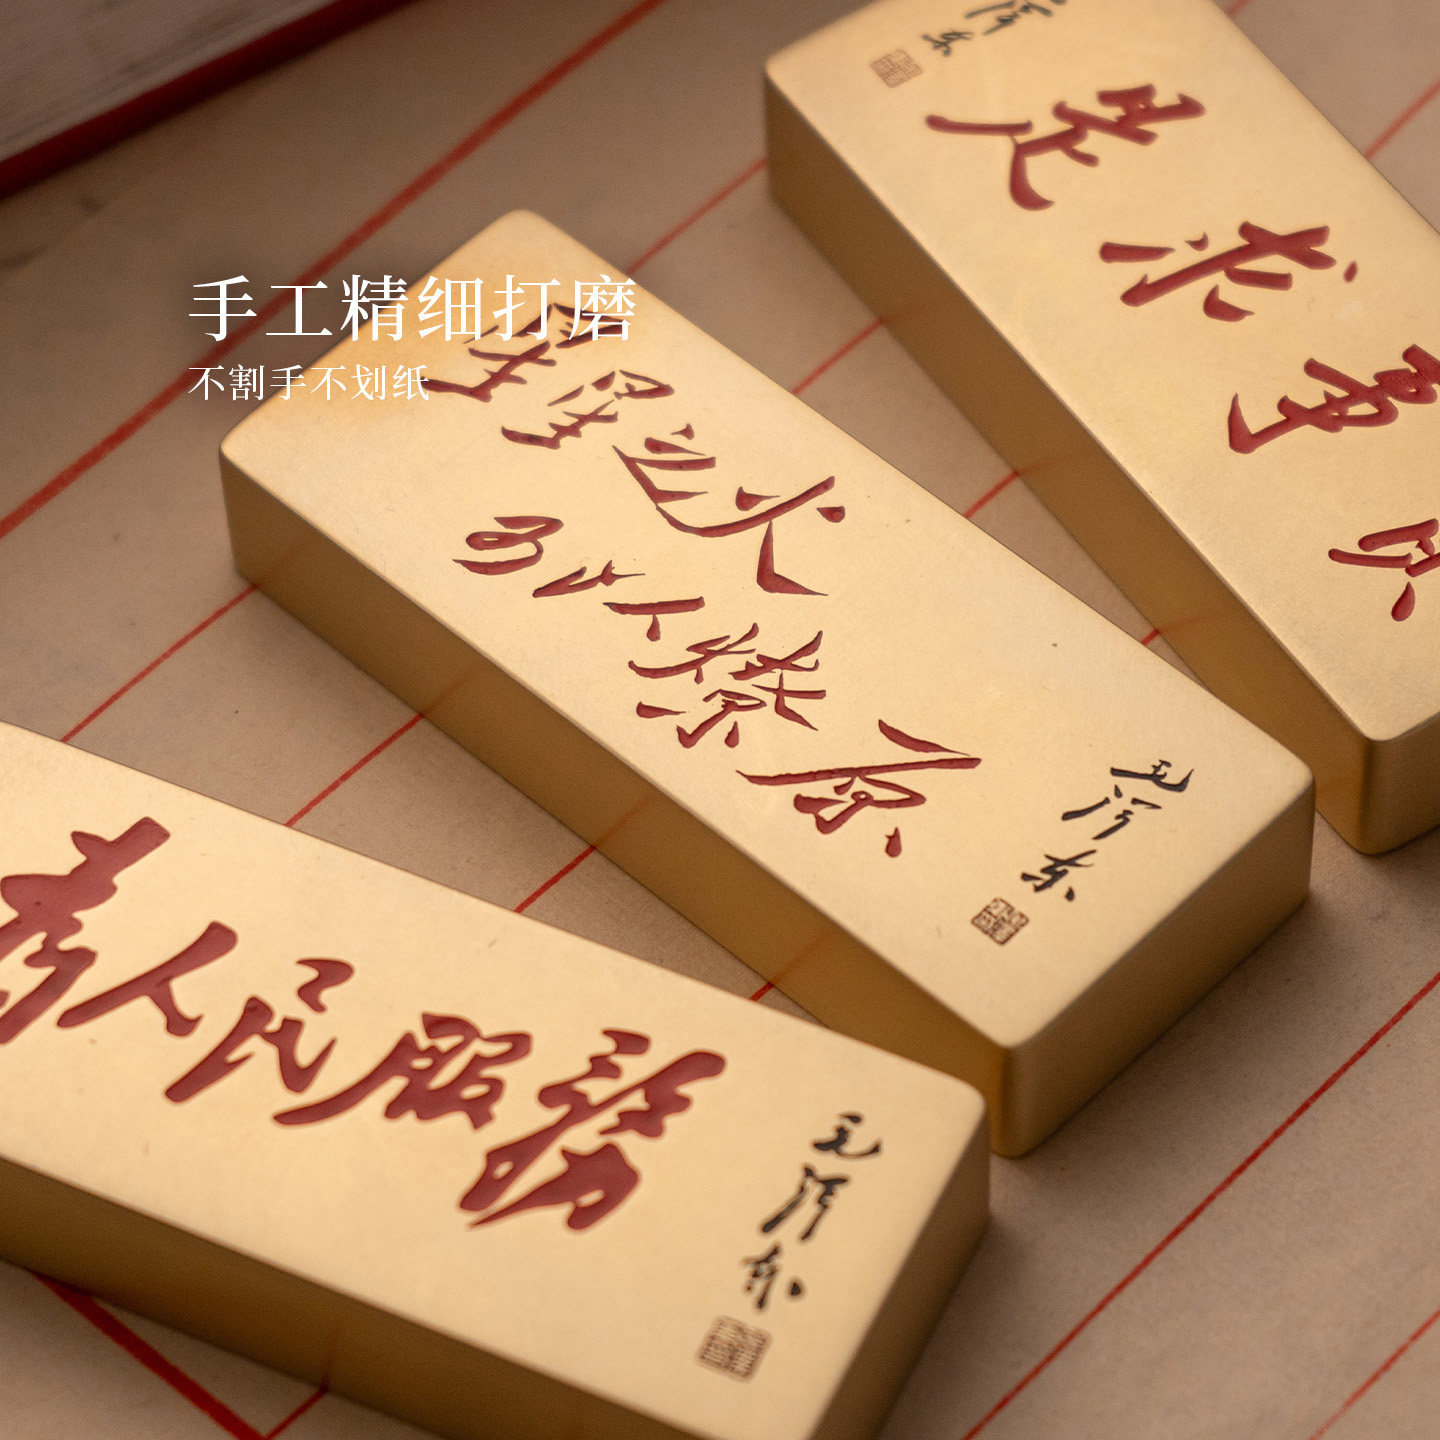 手工精细打磨
不割手不划纸
事求是
泽东
星星之火
可以燎原
毛泽东
為人民服務
毛泽东